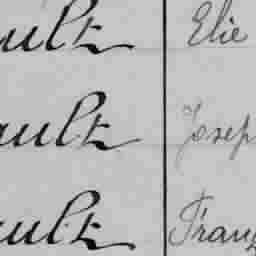 ault Elie
ault Josep
ault Franç